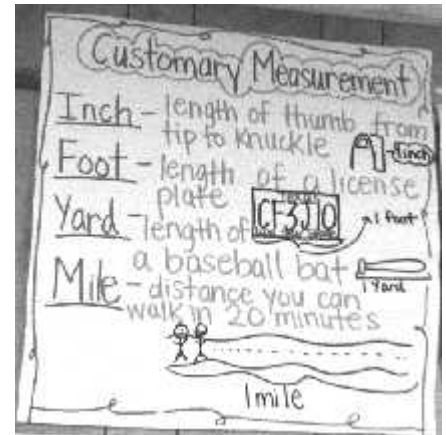 Customary Measurement
Inch - length of thumb from
tip to knuckle
1 inch
Foot - length of a license
plate
CF3J10
1 foot
Yard - length of
a baseball bat
1 Yard
Mile - distance you can
walk in 20 minutes
1 mile